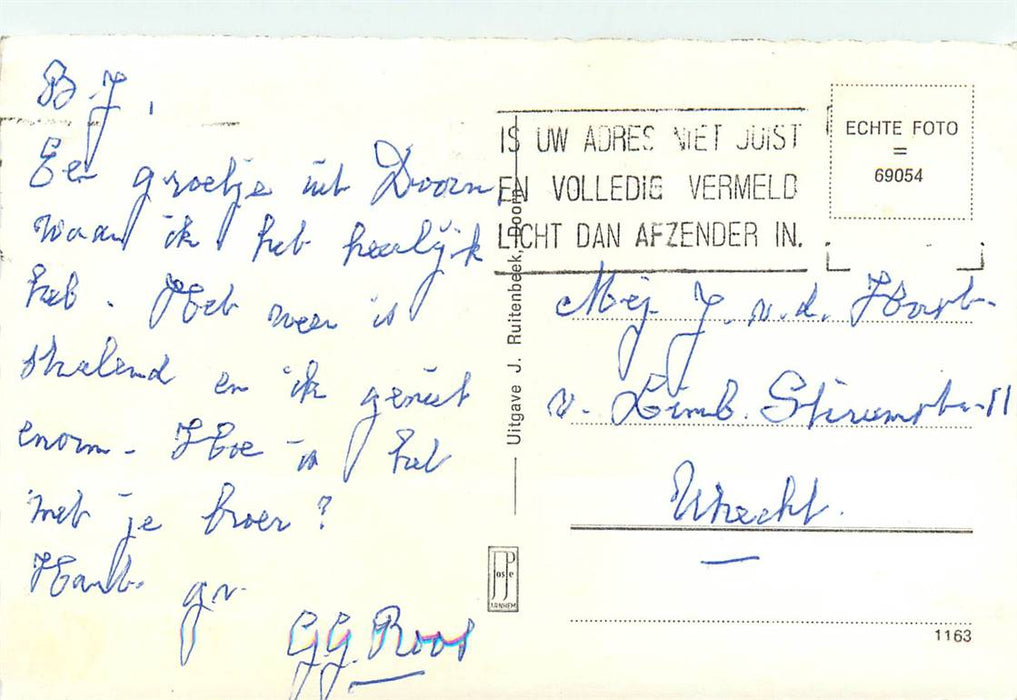 B J,
Een groetje uit Doorn
waar ik het heerlijk
heb. Het weer is
stralend en ik geniet
enorm. Hoe is het
met je broer?
Hart. gr.
G.G. Roos
Uitgave J. Ruitenbeek, Doorn
JosPe
ARNHEM
IS UW ADRES NIET JUIST
EN VOLLEDIG VERMELD
LICHT DAN AFZENDER IN.
ECHTE FOTO
=
69054
Mej. J. v.d. Horst.
v. Limb. Stirumstr. 11
Utrecht.
1163